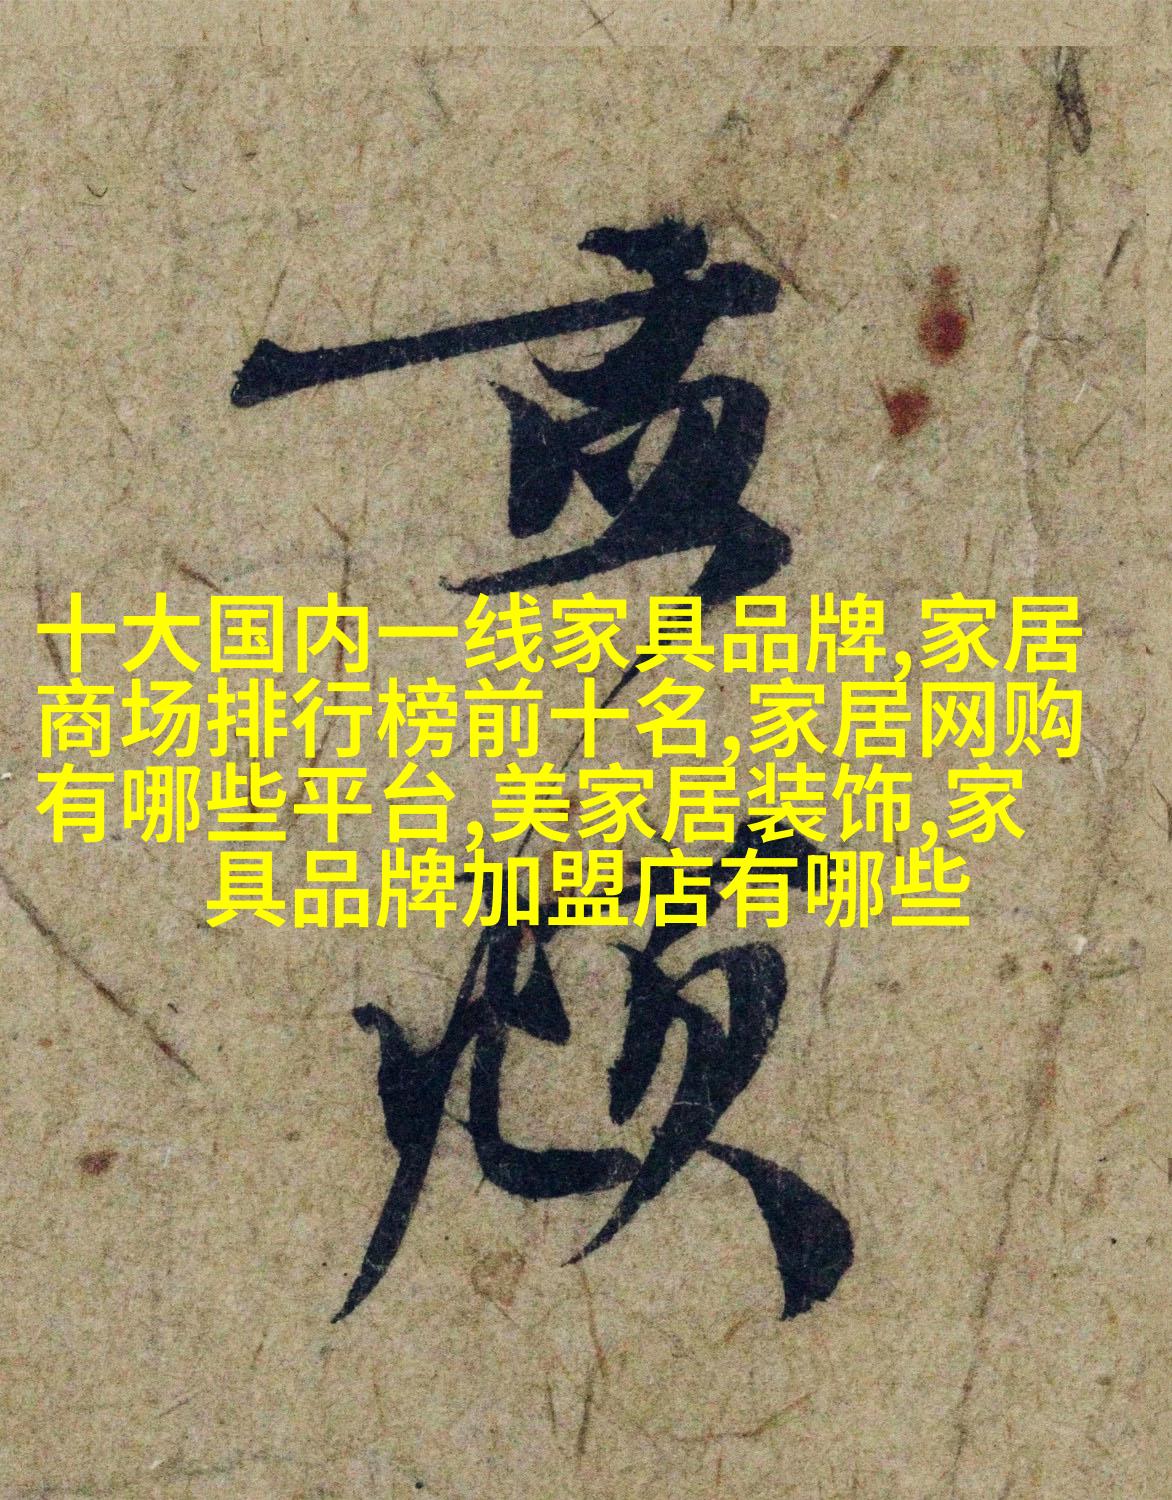 十大国内一线家具品牌,家居
商场排行榜前十名,家居网购
有哪些平台,美家居装饰,家
具品牌加盟店有哪些